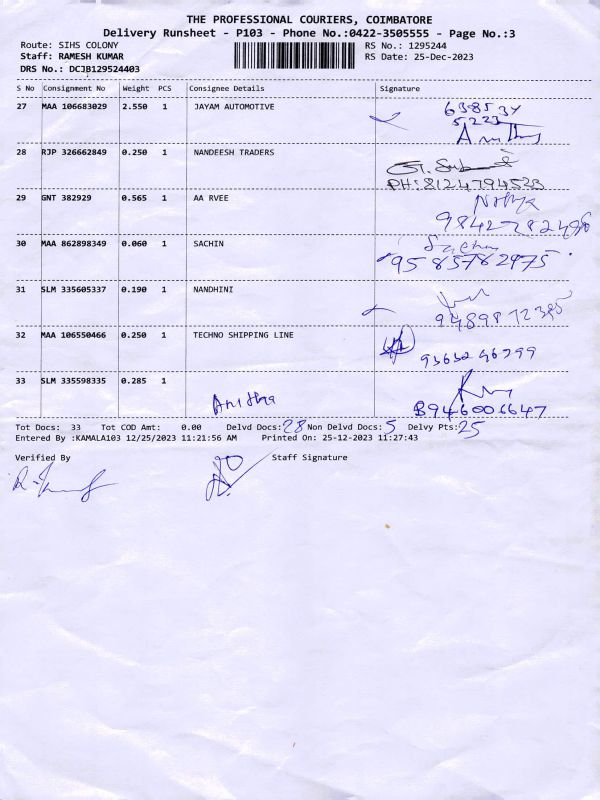 THE PROFESSIONAL COURIERS, COIMBATORE
Delivery Runsheet - P103 - Phone No.:0422-3505555 - Page No.:3
Route: SIHS COLONY RS No.: 1295244
Staff: RAMESH KUMAR RS Date: 25-Dec-2023
DRS No.: DCJB129524403
S No Consignment No Weight PCS Consignee Details Signature
27 MAA 106683029 2.550 1 JAYAM AUTOMOTIVE 638534
5223
28 RJP 326662849 0.250 1 NANDEESH TRADERS
PH: 8124794523
29 GNT 382929 0.565 1 AA RVEE
9842782496
30 MAA 862898349 0.060 1 SACHIN Sachin
9585782975
31 SLM 335605337 0.190 1 NANDHINI
32 MAA 106550466 0.250 1 TECHNO SHIPPING LINE
9363296799
33 SLM 335598335 0.285 1
Anitha 8946006647
Tot Docs: 33 Tot COD Amt: 0.00 Delvd Docs: 28 Non Delvd Docs: 5 Delvy Pts: 25
Entered By :KAMALA103 12/25/2023 11:21:56 AM Printed On: 25-12-2023 11:27:43
Verified By Staff Signature